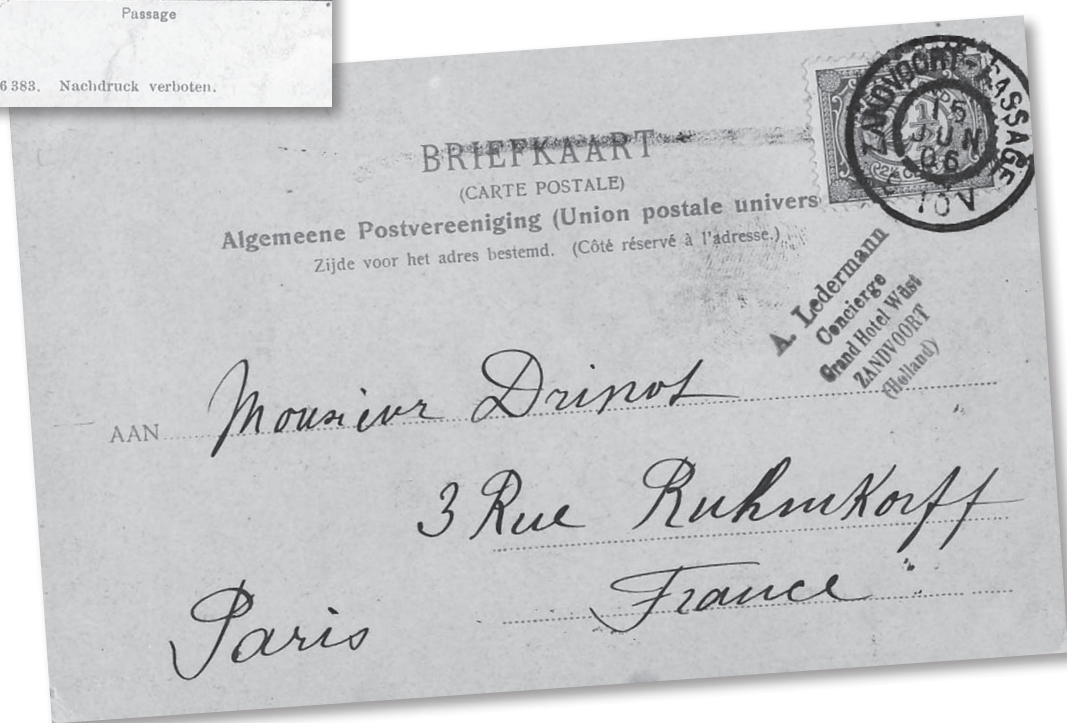 Passage
6383. Nachdruck verboten.
BRIEFKAART
(CARTE POSTALE)
Algemeene Postvereeniging (Union postale univers
Zijde voor het adres bestemd. (Côté réservé à l'adresse.)
ZANDVOORT-PASSAGE
15
JUN
06
10V
A. Ledermann
Concierge
Grand Hotel Wüst
ZANDVOORT
(Holland)
AAN Monsieur Drinot
3 Rue Ruhmkorff
Paris France